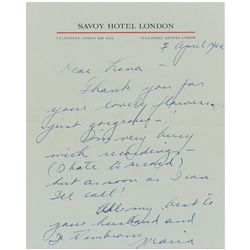 SAVOY HOTEL LONDON
TELEPHONE, TEMPLE BAR 4343 TELEGRAMS, SAVOTEL LONDON
2 April 1962
Dear Lena —
Thank you for
your lovely flowers,
just gorgeous —!
I'm very busy
with recordings —
(I hate to record)
but as soon as I can
I'll call!
All my best to
your husband and
Je t'embrasse
Maria